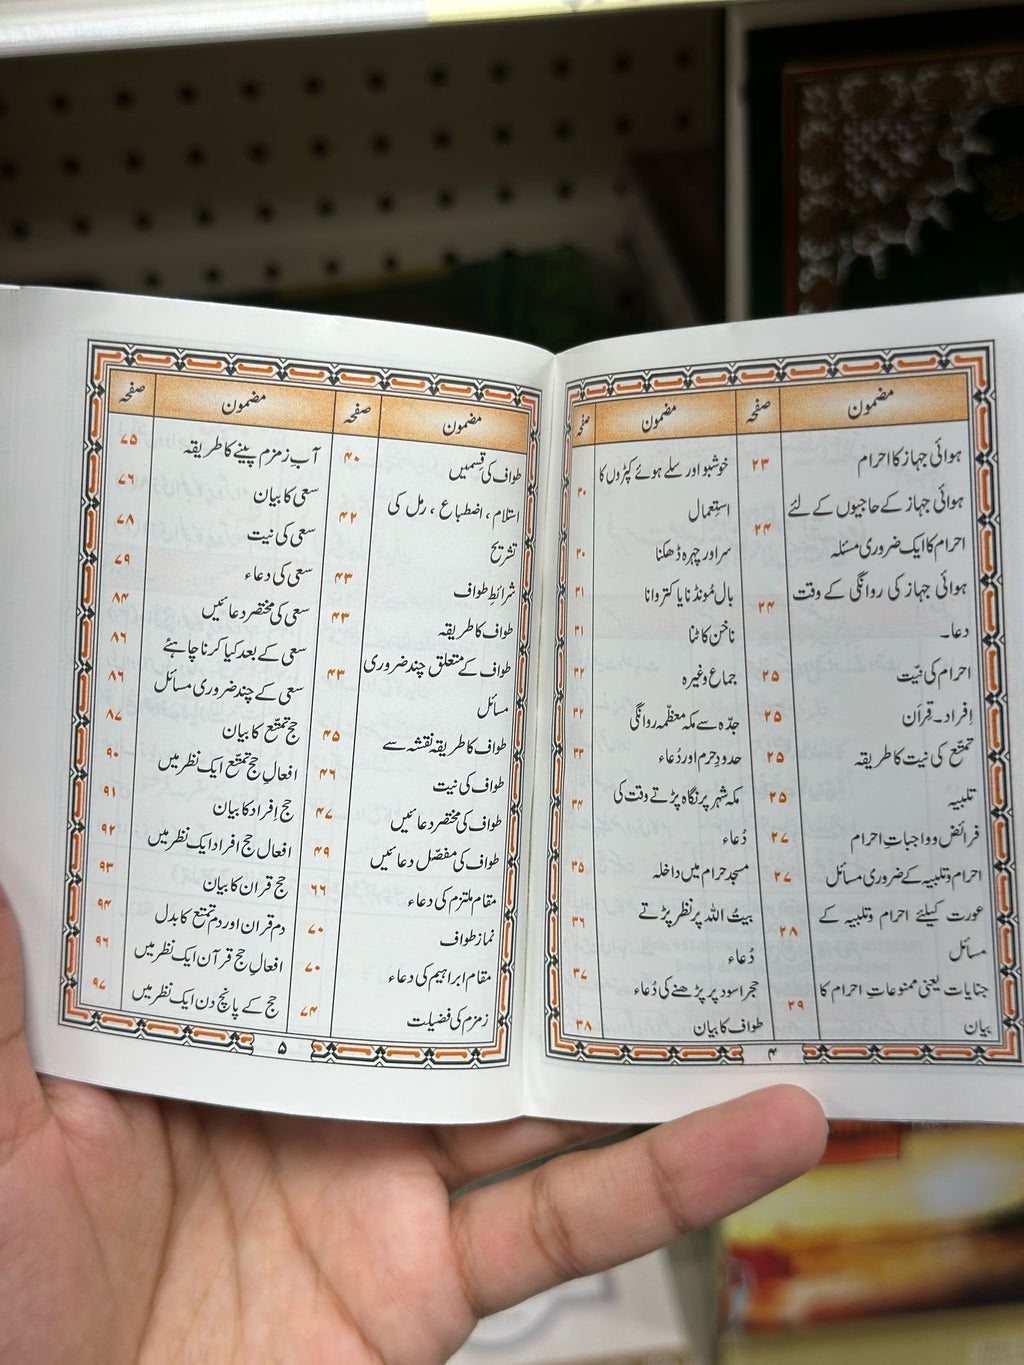 مضمون صفحہ
ہوائی جہاز کا احرام ۲۳
ہوائی جہاز کے حاجیوں کے لئے
احرام کا ایک ضروری مسئلہ ۲۴
ہوائی جہاز کی روانگی کے وقت
دعا۔ ۲۴
احرام کی نیّت ۲۵
اِفراد۔ قِرَان ۲۵
تمتّع کی نیت کا طریقہ ۲۵
تلبیہ ۲۵
فرائض و واجباتِ احرام ۲۷
احرام و تلبیہ کے ضروری مسائل ۲۷
عورت کیلئے احرام وتلبیہ کے
مسائل ۲۸
جنایات یعنی ممنوعاتِ احرام کا
بیان ۲۹
مضمون صفحہ
خوشبو اور سلے ہوئے کپڑوں کا
استِعمال ۳۰
سر اور چہرہ ڈھکنا ۳۰
بال مُونڈنا یا کتروانا ۳۱
ناخن کاٹنا ۳۱
جماع وغیرہ ۳۲
جدّہ سے مکہ معظّمہ روانگی ۳۲
حدودِ حرم اور دُعاء ۳۳
مکہ شہر پر نگاہ پڑتے وقت کی
دُعاء ۳۴
مسجد حرام میں داخلہ ۳۵
بیتُ اللہ پر نظر پڑتے
دُعاء ۳۶
حجر اسود پر پڑھنے کی دُعاء ۳۷
طواف کا بیان ۳۸
۴
مضمون صفحہ
طواف کی قِسمیں ۴۰
استلام ، اضطباع ، رمل کی
تشریح ۴۲
شرائطِ طواف ۴۳
طواف کا طریقہ ۴۳
طواف کے متعلق چند ضروری
مسائل ۴۳
طواف کا طریقہ نقشہ سے ۴۵
طواف کی نیت ۴۶
طواف کی مختصر دعائیں ۴۷
طواف کی مفصّل دعائیں ۴۹
مقام ملتزم کی دعاء ۶۶
نماز طواف ۷۰
مقام ابراہیم کی دعاء ۷۰
زمزم کی فضیلت ۷۴
مضمون صفحہ
آبِ زمزم پینے کا طریقہ ۷۵
سعی کا بیان ۷۶
سعی کی نیت ۷۸
سعی کی دعاء ۷۹
سعی کی مختصر دعائیں ۸۴
سعی کے بعد کیا کرنا چاہئے ۸۶
سعی کے چند ضروری مسائل ۸۶
حج تمتّع کا بیان ۸۷
افعالِ حج تمتّع ایک نظر میں ۹۰
حج اِفراد کا بیان ۹۱
افعال حج افراد ایک نظر میں ۹۲
حج قران کا بیان ۹۳
دم قران اور دم تمتع کا بدل ۹۴
افعالِ حج قرآن ایک نظر میں ۹۶
حج کے پانچ دن ایک نظر میں ۹۷
۵